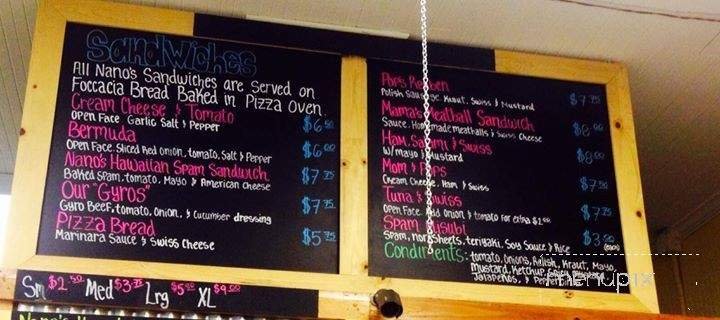 Sandwiches
All Nano's Sandwiches are Served on
Foccacia Bread Baked in Pizza Oven.
Cream Cheese & Tomato
Open Face Garlic Salt & Pepper $6.50
Bermuda
Open Face. Sliced Red onion, tomato, Salt & Pepper $6.00
Nano's Hawaiian Spam Sandwich
Baked Spam, tomato, Mayo & American Cheese $7.75
Our "Gyros"
Gyro Beef, tomato, Onion, & Cucumber dressing $7.75
Pizza Bread
Marinara Sauce & Swiss Cheese $5.75
Pop's Reuben
Polish Sausage, Kraut, Swiss & Mustard $7.75
Mama's Meatball Sandwich
Sauce, Homemade meatballs & Swiss Cheese $8.00
Ham, Salami & Swiss
w/mayo & Mustard $8.00
Mom & Pops
Cream Cheese, Ham & Swiss $7.50
Tuna & Swiss
Open Face. Add Onion & tomato for extra $2.00 $7.75
Spam Musubi
Spam, nori Sheets, teriyaki, Soy Sauce & Rice $3.50 (each)
Condiments: tomato, Onions, Relish, Kraut, Mayo,
Mustard, Ketchup, Spicy Mustard
Jalapenos, &
Sm $2.50 Med $3.75 Lrg $5.00 XL $9.00
menupix